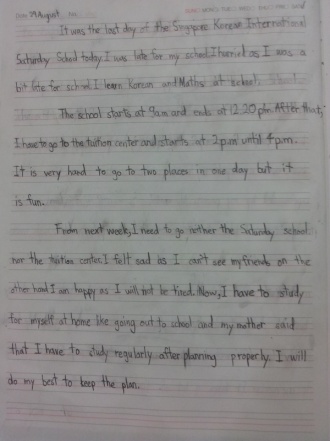 29 August
It was the last day of the Singapore Korean International
Saturday School today. I was late for my school. I hurried as I was a
bit late for school. I learn Korean and Maths at school.
The school starts at 9am and ends at 12.20 pm. After that,
I have to go to the tuition center and starts at 2pm until 4pm.
It is very hard to go to two places in one day but it
is fun.
From next week, I need to go nother the Saturday school
nor the tuition center. I felt sad as I can't see my friends on the
other hand I am happy as I will not be tired. Now, I have to study
for myself at home like going out to school and my mother said
that I have to study regularly after planning properly. I will
do my best to keep the plan.